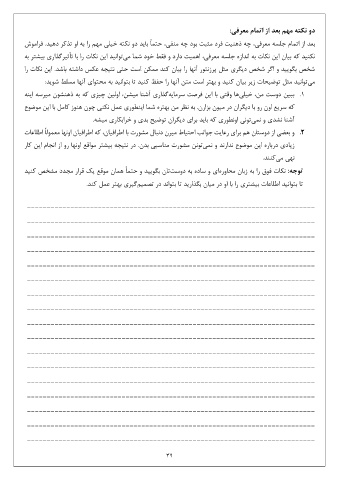 دو نکته مهم بعد از اتمام معرفی:
بعد از اتمام جلسه معرفی، چه ذهنیت فرد مثبت بود چه منفی، حتماً باید دو نکته خیلی مهم را به او تذکر دهید. فراموش
نکنید که بیان این نکات به اندازه جلسه معرفی، اهمیت دارد و فقط خود شما می‌توانید این نکات را با تأثیرگذاری بیشتر به
شخص بگویید و اگر شخص دیگری مثل پرزنتور آنها را بیان کند ممکن است حتی نتیجه عکس داشته باشد. این نکات را
می‌توانید مثل توضیحات زیر بیان کنید و بهتر است متن آنها را حفظ کنید تا بتوانید به محتوای آنها مسلط شوید:
۱. ببین دوست من، خیلی‌ها وقتی با این فرصت سرمایه‌گذاری آشنا میشن، اولین چیزی که به ذهنشون میرسه اینه
که سریع اون رو با دیگران در میون بزارن. به نظر من بهتره شما اینطوری عمل نکنی چون هنوز کامل با این موضوع
آشنا نشدی و نمی‌تونی اونطوری که باید برای دیگران توضیح بدی و خرابکاری میشه.
۲. و بعضی از دوستان هم برای رعایت جوانب احتیاط میرن دنبال مشورت با اطرافیان، که اطرافیان اونها معمولاً اطلاعات
زیادی درباره این موضوع ندارند و نمی‌تونن مشورت مناسبی بدن. در نتیجه بیشتر مواقع اونها رو از انجام این کار
نهی می‌کنند.
توجه: نکات فوق را به زبان محاوره‌ای و ساده به دوست‌تان بگویید و حتماً همان موقع یک قرار مجدد مشخص کنید
تا بتوانید اطلاعات بیشتری را با او در میان بگذارید تا بتواند در تصمیم‌گیری بهتر عمل کند.
۳۹